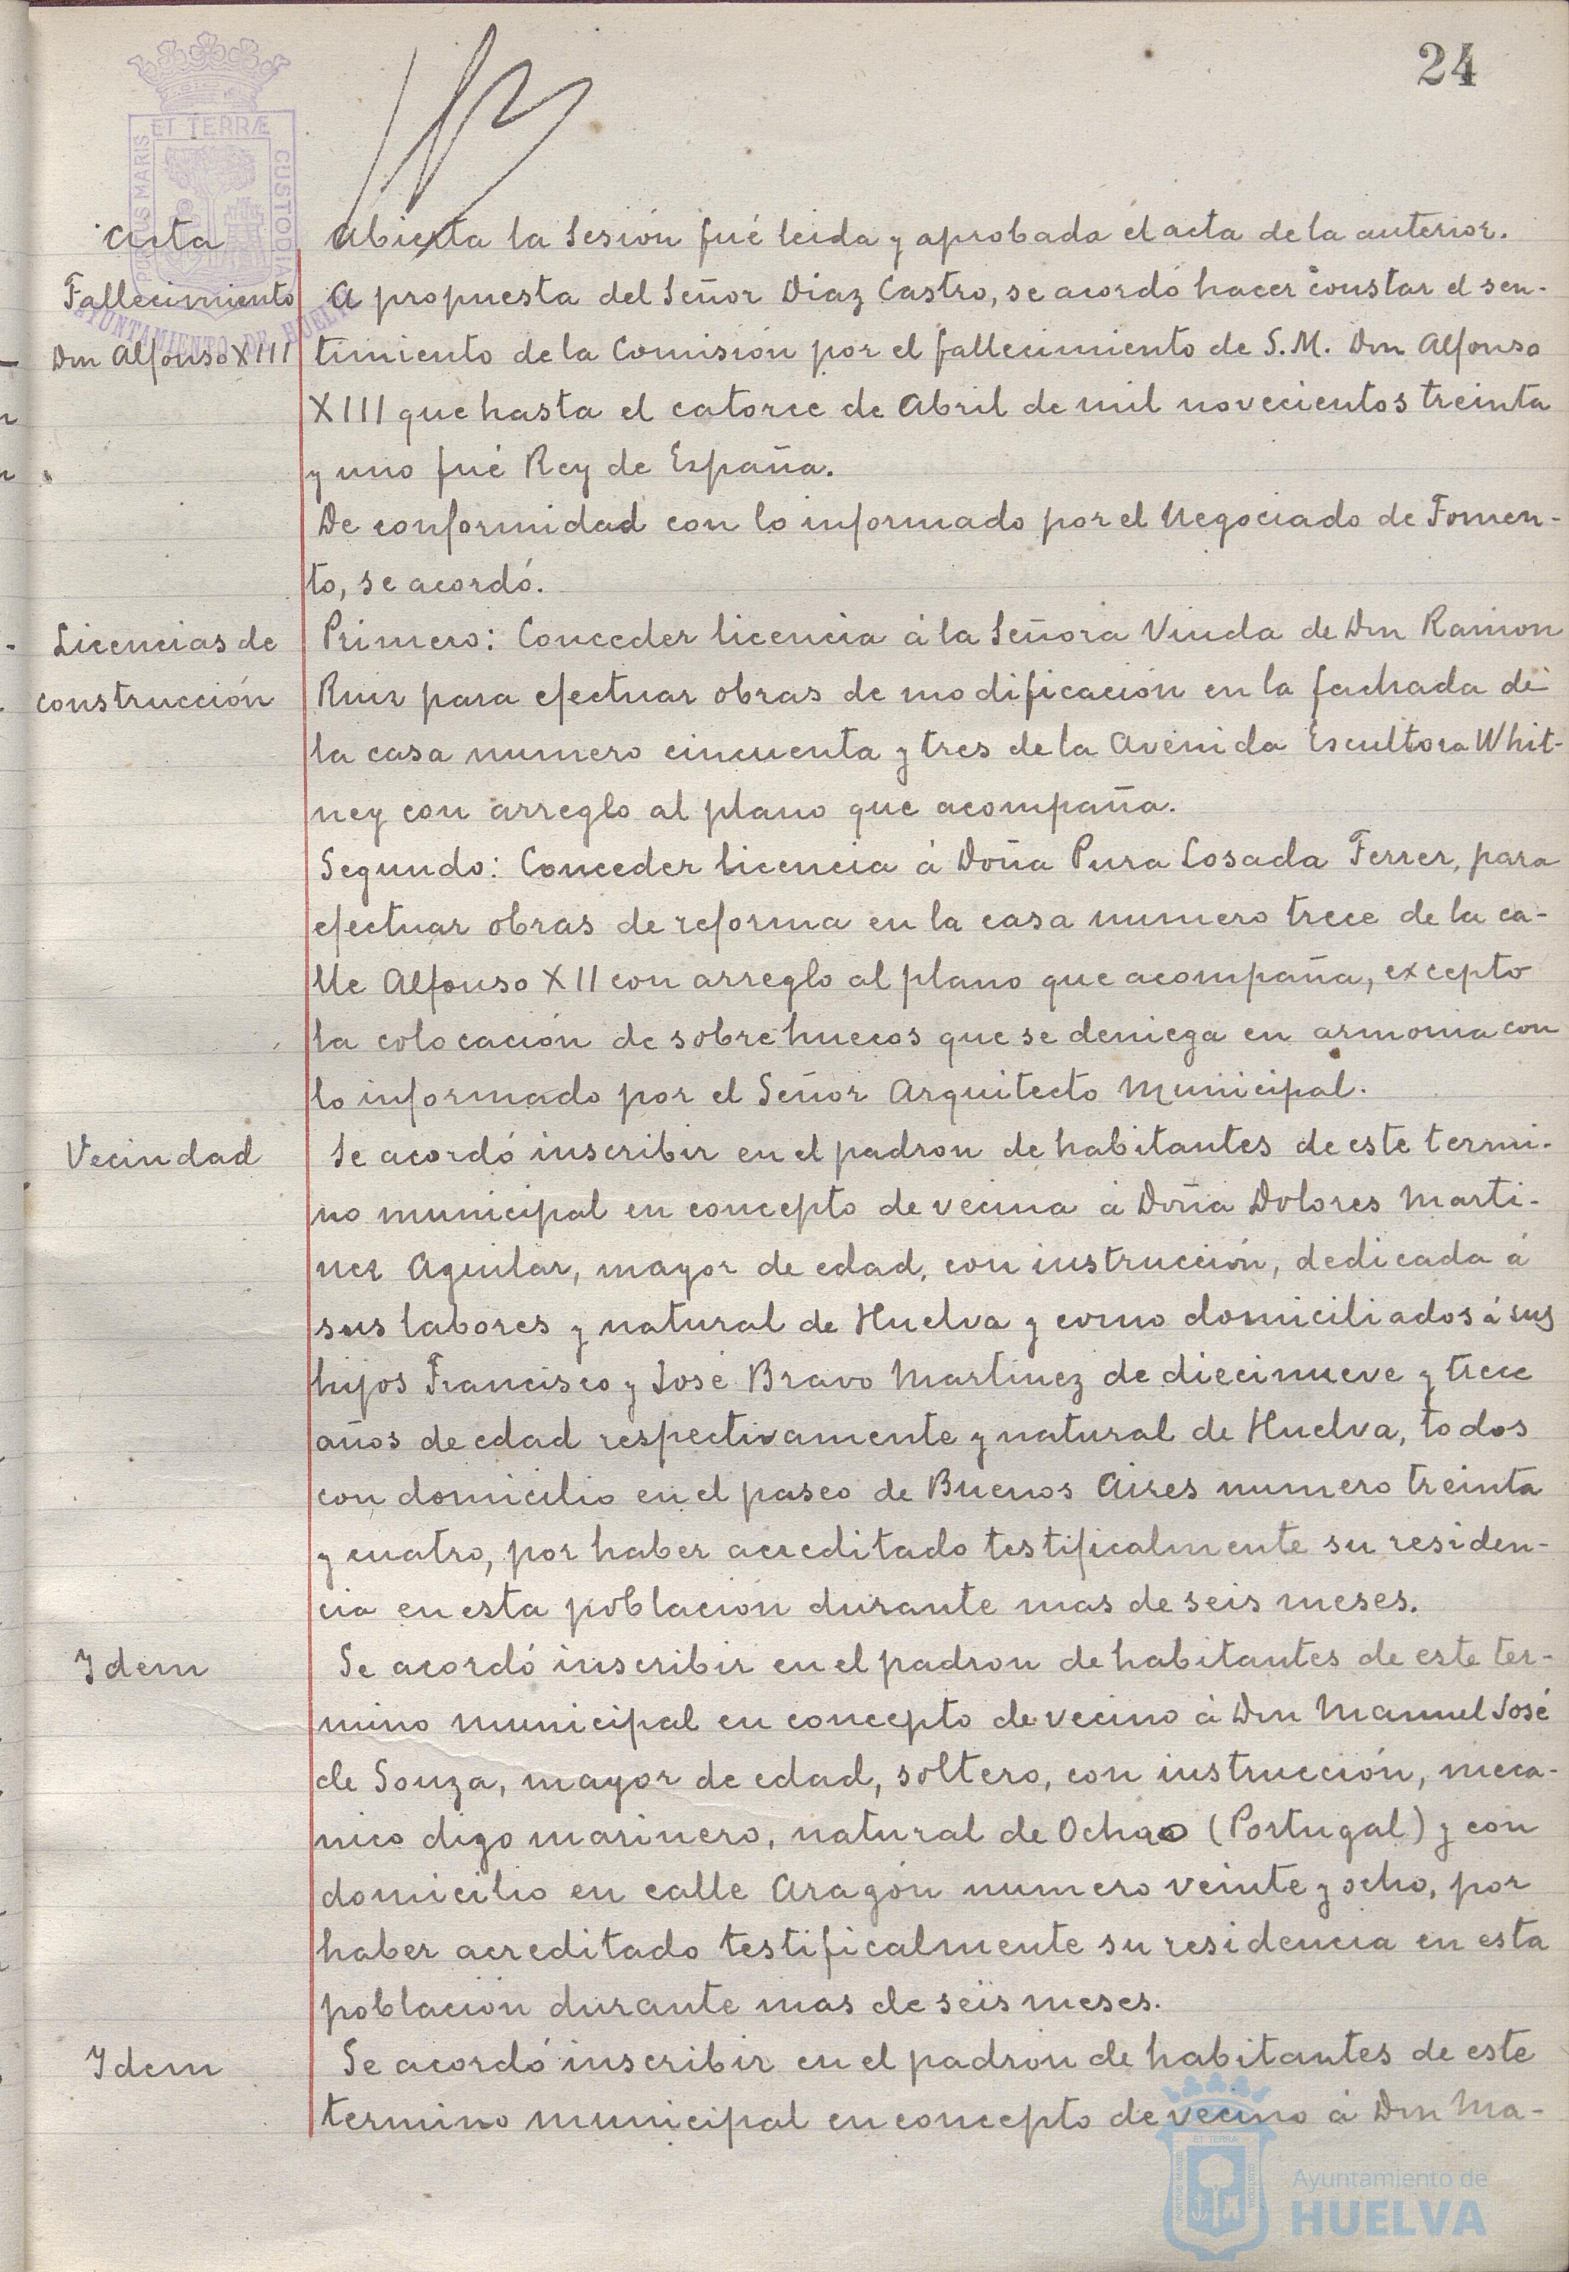 24
ET TERRÆ
PORTUS MARIS
CUSTODIA
AYUNTAMIENTO DE HUELVA
Acta
Abierta la Sesión fué leida y aprobada el acta de la anterior.
Fallecimiento
A propuesta del Señor Diaz Castro, se acordó hacer constar el sen-
Don Alfonso XIII
timiento de la Comisión por el fallecimiento de S.M. Don Alfonso
XIII que hasta el catorce de Abril de mil novecientos treinta
y uno fué Rey de España.
De conformidad con lo informado por el Negociado de Fomen-
to, se acordó.
Licencias de
Primero: Conceder licencia á la Señora Viuda de Don Ramon
construcción
Ruiz para efectuar obras de modificación en la fachada de
la casa numero cincuenta y tres de la Avenida Escultora Whit-
ney con arreglo al plano que acompaña.
Segundo: Conceder licencia á Doña Pura Losada Ferrer, para
efectuar obras de reforma en la casa numero trece de la ca-
lle Alfonso XII con arreglo al plano que acompaña, excepto
la colocación de sobrehuecos que se deniega en armonia con
lo informado por el Señor Arquitecto Municipal.
Vecindad
Se acordó inscribir en el padron de habitantes de este termi-
no municipal en concepto de vecina á Doña Dolores Marti-
nez Aguilar, mayor de edad, con instrucción, dedicada á
sus labores y natural de Huelva y como domiciliados á sus
hijos Francisco y José Bravo Martinez de diecinueve y trece
años de edad respectivamente y natural de Huelva, todos
con domicilio en el paseo de Buenos Aires numero treinta
y cuatro, por haber acreditado testificalmente su residen-
cia en esta población durante mas de seis meses.
Idem
Se acordó inscribir en el padron de habitantes de este ter-
mino municipal en concepto de vecino á Don Manuel José
de Souza, mayor de edad, soltero, con instrucción, meca-
nico digo marinero, natural de Ochao (Portugal) y con
domicilio en calle Aragón numero veinte y ocho, por
haber acreditado testificalmente su residencia en esta
población durante mas de seis meses.
Idem
Se acordó inscribir en el padron de habitantes de este
termino municipal en concepto de vecino á Don Ma-
Ayuntamiento de
HUELVA